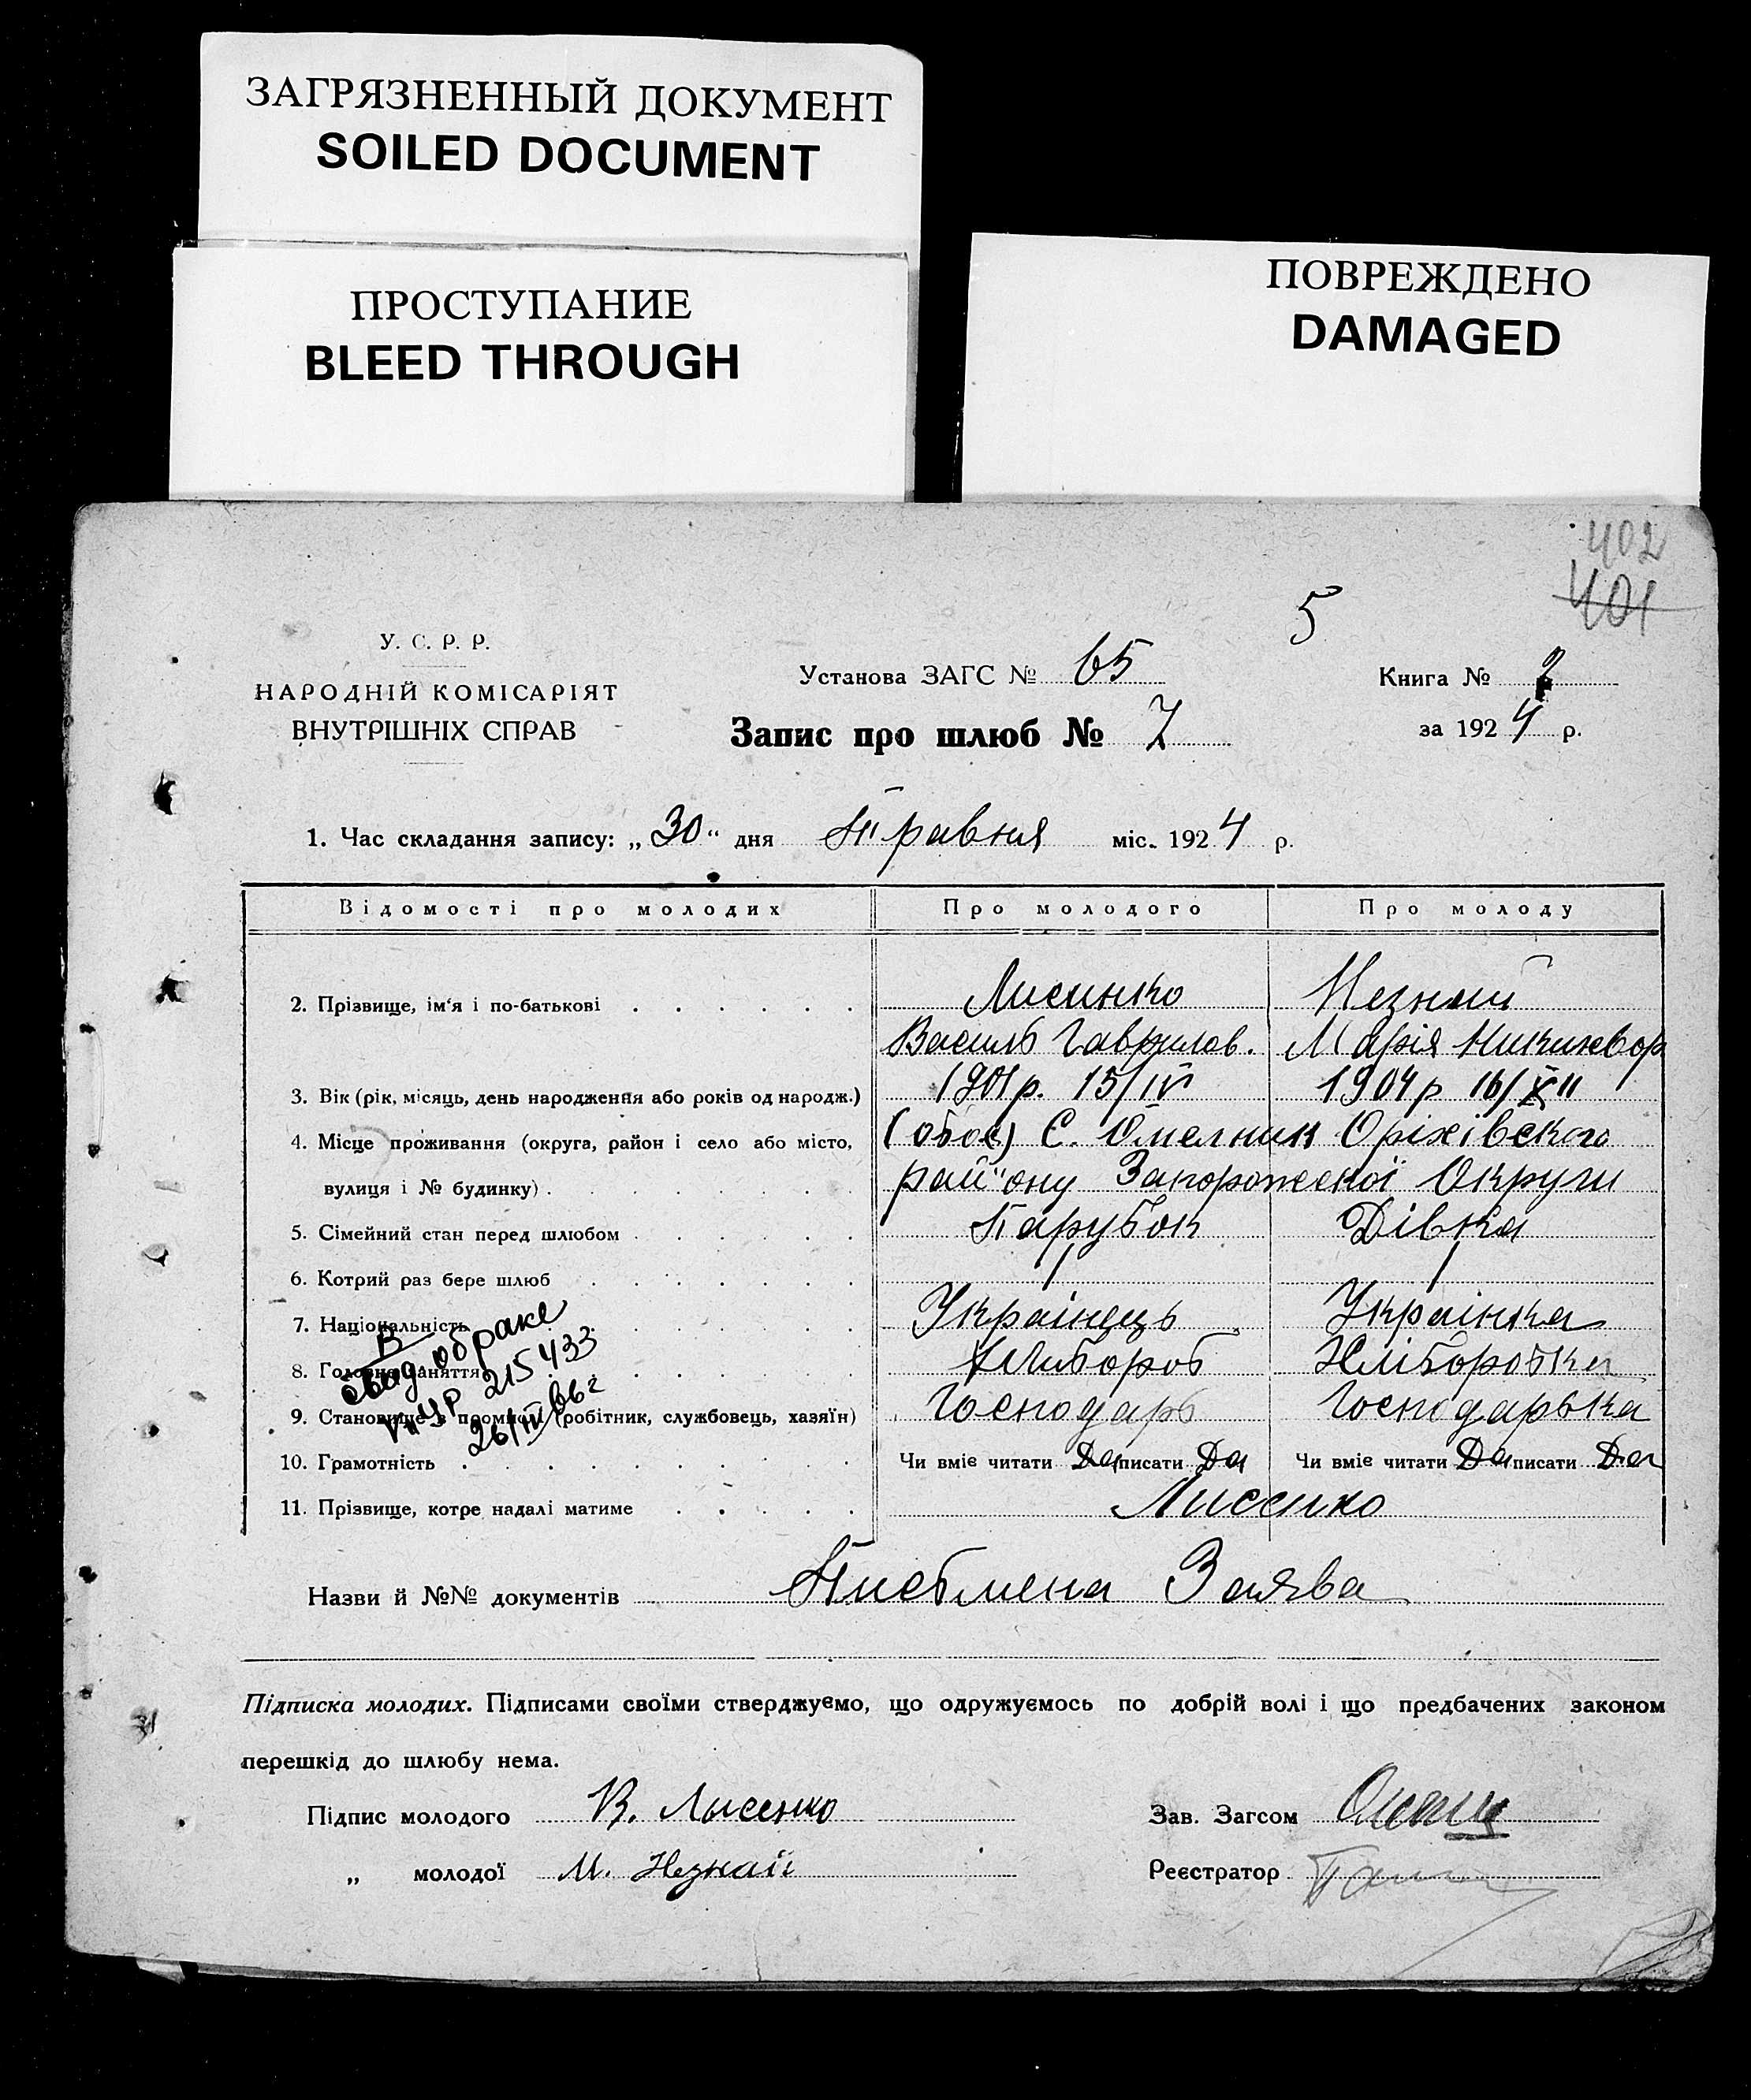 ЗАГРЯЗНЕННЫЙ ДОКУМЕНТ
SOILED DOCUMENT
ПРОСТУПАНИЕ
BLEED THROUGH
ПОВРЕЖДЕНО
DAMAGED
402
401
5
У. С. Р. Р.
НАРОДНІЙ КОМІСАРІЯТ
ВНУТРІШНІХ СПРАВ
Установа ЗАГС № 65
Запис про шлюб № 7
Книга № 2
за 1924 р.
1. Час складання запису: „30“ дня Травня міс. 1924 р.
Відомості про молодих Про молодого Про молоду
2. Прізвище, ім'я і по-батькові Лисинко
Василь Гаврилов. Марія Никихвор
3. Вік (рік, місяць, день народження або років од народж.) 1901 р. 15/IV 1904 р 16/XII
4. Місце проживання (округа, район і село або місто, (обоє) С. Омелник Оріхівского
вулиця і № будинку) район"ону Запорожскої Округи
5. Сімейний стан перед шлюбом Парубок Дівка
6. Котрий раз бере шлюб 1 1
7. Національність Українець Українка
8. Головне заняття Хлибороб Хлиборобка
9. Становище в промислі (робітник, службовець, хазяїн) Господарь Господарька
10. Грамотність Чи вміє читати Да писати Да Чи вміє читати Да писати Да
11. Прізвище, котре надалі матиме Лисенко
В
свид. обраке
УР 215433
26/IV 66 г
Назви й №№ документів Письмена Заява
Підписка молодих. Підписами своїми стверджуємо, що одружуємось по добрій волі і що предбачених законом
перешкід до шлюбу нема.
Підпис молодого В. Лысенко
Зав. Загсом
„ молодої М. Незнай
Реєстратор